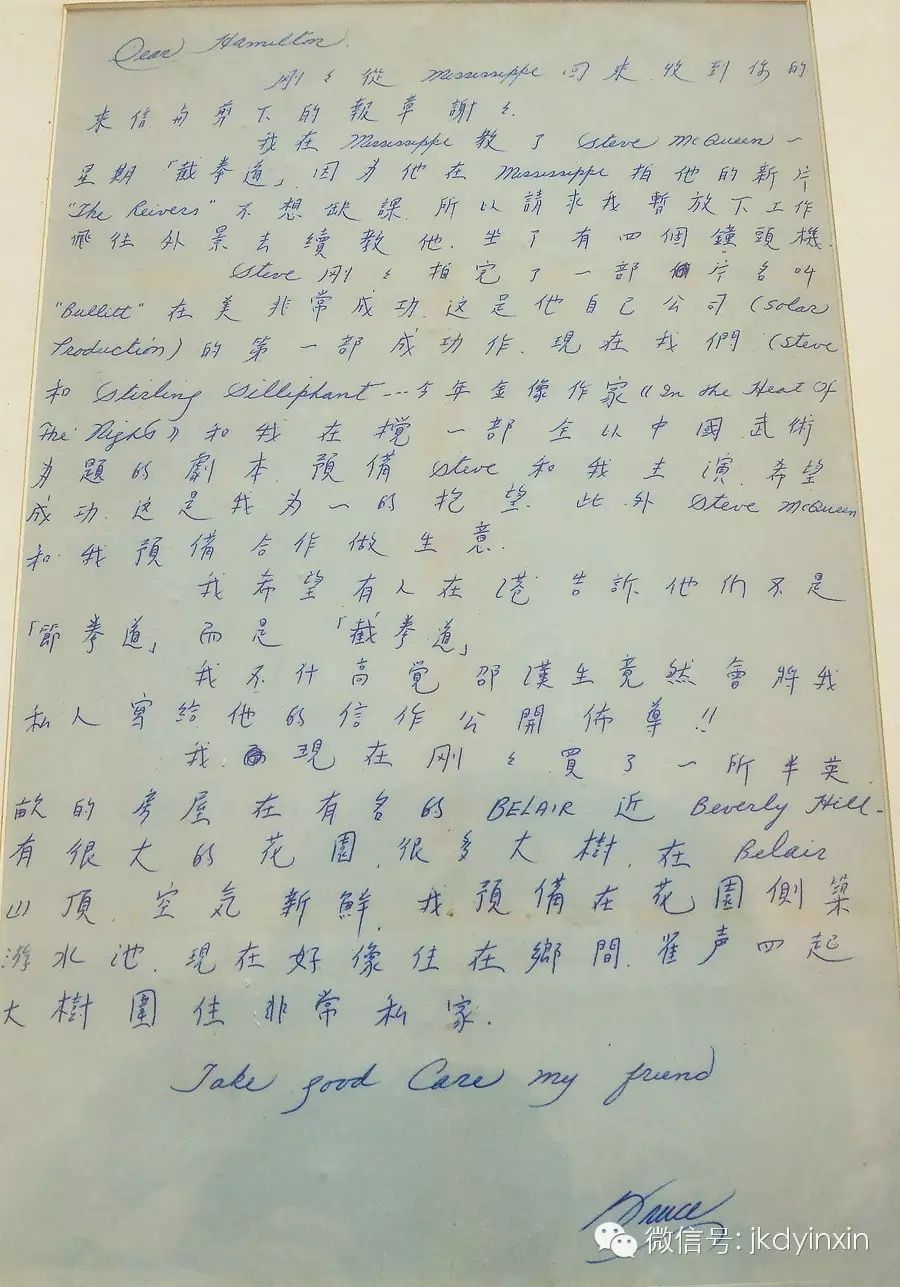 Dear Hamilton.
剛々從 Mississippe 回來 收到你的
來信与剪下的報章 謝々.
我在 Mississippe 教了 Steve McQueen 一
星期「截拳道」因为他在 Mississippe 拍他的新片
"The Reivers" 不想缺課. 所以請求我暫放下工作
飛往外景去續教他. 坐了有四個鐘頭機.
Steve 刚々拍完了一部 片名叫
"Bullitt" 在美非常成功. 这是他自己公司 (Solar
Production) 的第一部成功作. 現在我們 (Steve
和 Stirling Silliphant --- 今年金像作家《In the Heat Of
The Night》和我在搅一部全以中國武術
为題的劇本. 預備 Steve 和我主演. 希望
成功. 这是我为一的抱望. 此外 Steve McQueen
和我預備合作做生意.
我希望有人在港告訴他们不是
「節拳道」而是「截拳道」
我不什高覚邵漢生竟然會将我
私人寫給他的信作公開佈導!!
我 現在刚々買了一所半英
畝的房屋在有名的 BELAIR 近 Beverly Hill-
有很大的花園. 很多大樹. 在 Belair
山頂. 空気新鮮. 我預備在花園側築
游水池. 現在好像住在鄉間. 雀声四起
大樹圍住非常私家.
Take good Care my friend
Bruce
微信号: jkdyinxin